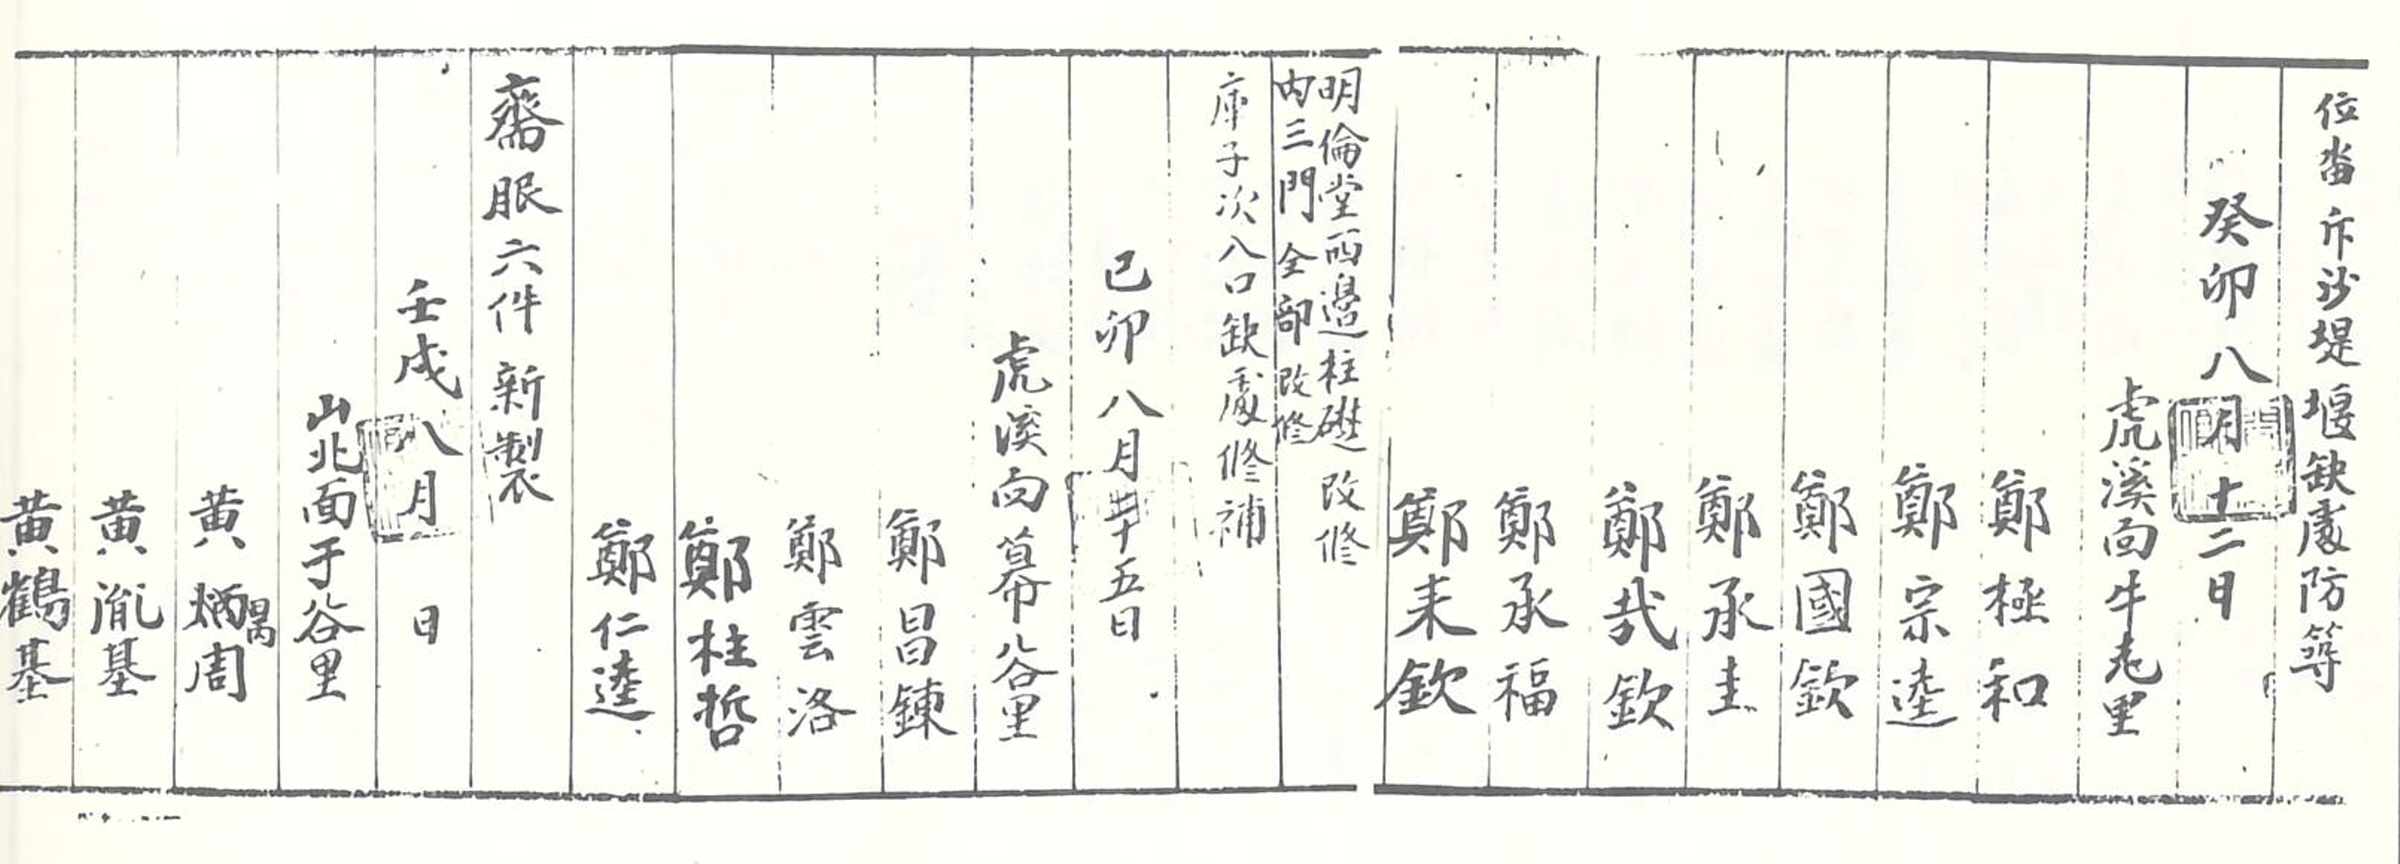 位畓斥沙堤堰缺處防等
癸卯八月十二日
虎溪面牛老里
鄭極和
鄭宗逵
鄭國欽
鄭承圭
鄭哉欽
鄭承福
鄭來欽
明倫堂西邊柱礎改修
內三門全部改修
庫子次八口缺處修補
己卯八月二十五日
虎溪面幕谷里
鄭昌鍊
鄭雲洛
鄭柱哲
鄭仁逵
齋服六件新製
壬戌八月 日
山北面于谷里
黃炳周
黃胤基
黃鶴基